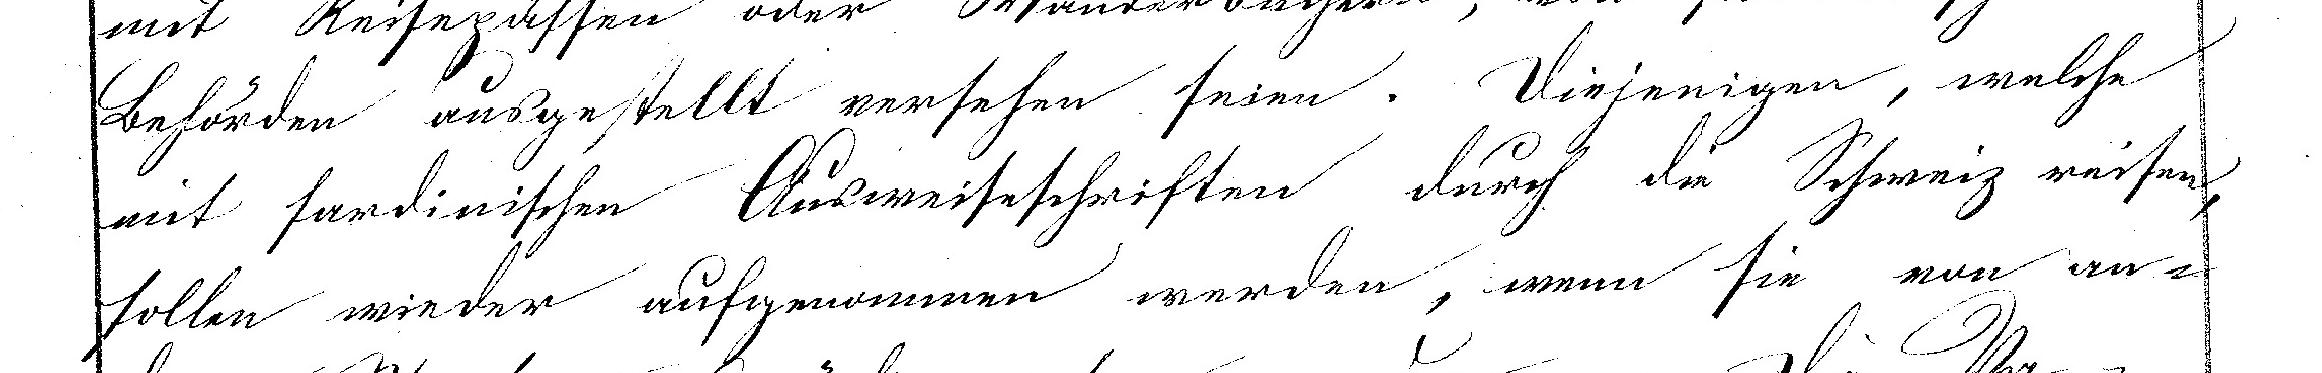 mit Reisepässen oder Wanderbüchern, von
Behörden ausgestellt versehen seien. Diejenigen, welche
mit sardinischen Ausweiseschriften durch die Schweiz reisen,
sollen wieder aufgenommen werden, wenn sie von an-